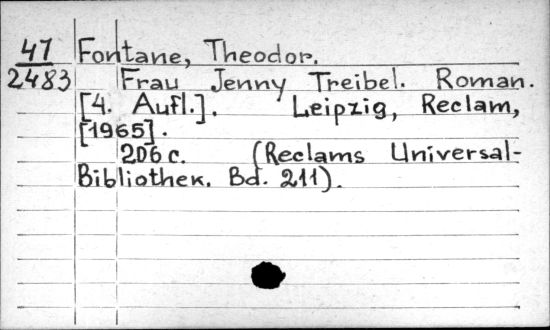 47 Fontane, Theodor.
2483 Frau Jenny Treibel. Roman.
[4. Aufl.]. Leipzig, Reclam,
[1965].
206 с. (Reclams Universal-
Bibliothек. Bd. 211).